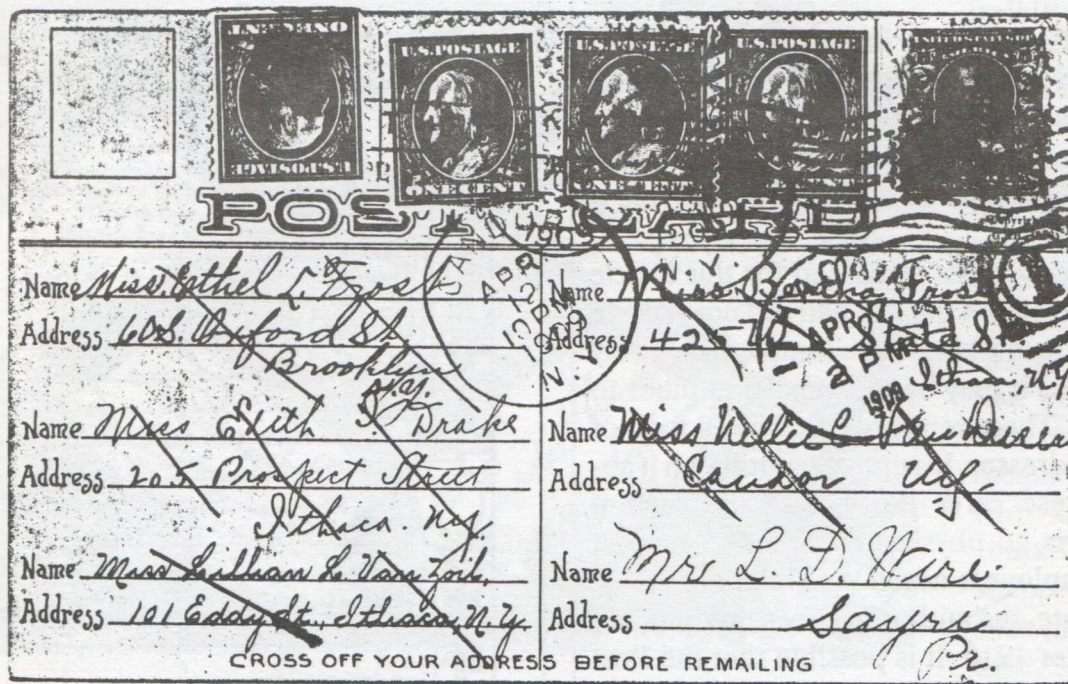 ONE CENT
U.S. POSTAGE
U.S. POSTAGE
ONE CENT
U.S. POSTAGE
ONE CENT
U.S. POSTAGE
POST CARD
CANDOR
APR
12
10 PM
1909
N.Y.
Name Miss Ethel L. Frost
Address 60 S. Oxford St.
Brooklyn
N.Y.
Name Miss Edith I. Drake
Address 205 Prospect Street
Ithaca. N.Y.
Name Miss Lillian L. Van Zoil,
Address 101 Eddy St., Ithaca, N.Y.
N.Y.
APR
2 PM
1909
1
Name Miss Bertha Frost
Address 425 State St
Ithaca, N.Y.
Name Miss Nellie C. Van Dusen
Address Candor N.Y.
Name Mr L. D. Wire.
Address Sayre
Pa.
CROSS OFF YOUR ADDRESS BEFORE REMAILING